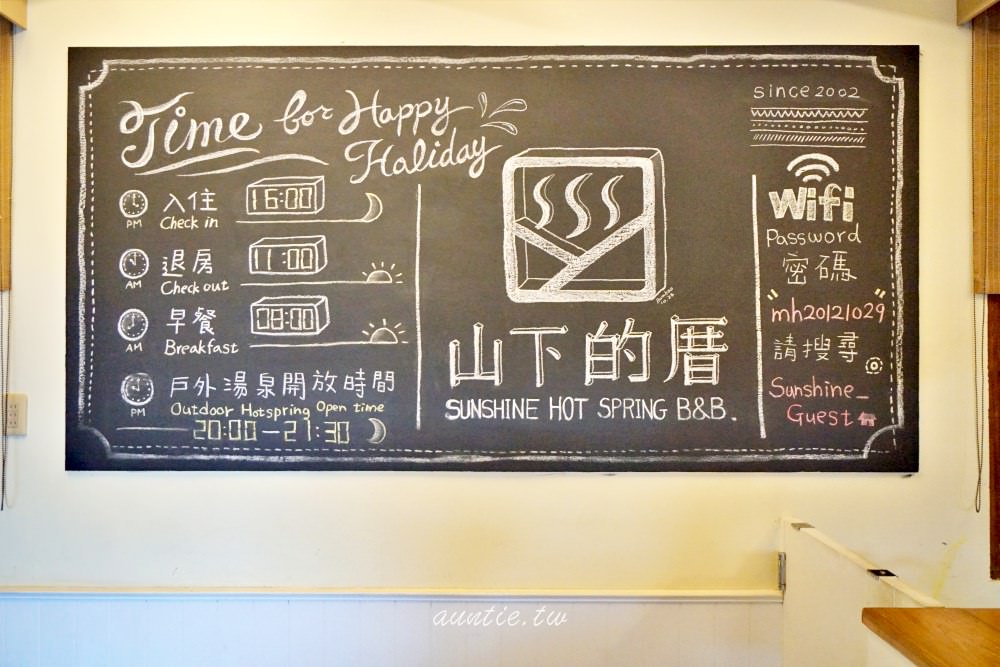 Time for Happy
Haliday
PM
入住
Check in
16:00
AM
退房
Check out
11:00
AM
早餐
Breakfast
08:00
PM
戶外湯泉開放時間
Outdoor Hotspring Open time
20:00-21:30
山下的厝
SUNSHINE HOT SPRING B&B.
since 2002
Wifi
Password
密碼
"mh20121029"
請搜尋
Sunshine_
Guest
auntie.tw